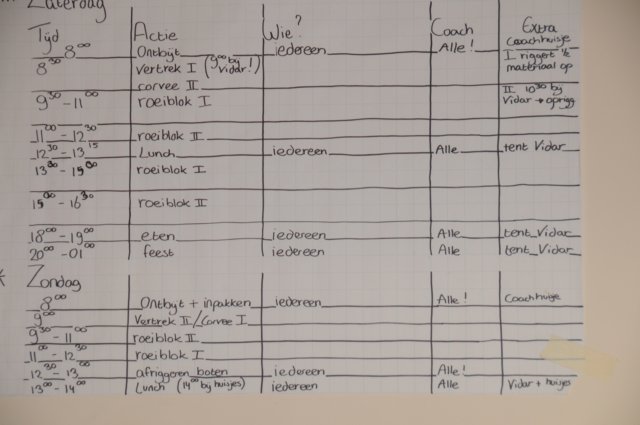 Zaterdag
Tijd Actie Wie? Coach Extra
8⁰⁰ Ontbijt iedereen Alle! Coachhuisje
8³⁰ Vertrek I (9⁰⁰ bij Vidar!) I riggert ½ materiaal op
corvee II
9³⁰ - 11⁰⁰ roeiblok I II 10³⁰ bij Vidar → oprigg
11⁰⁰ - 12³⁰ roeiblok II
12³⁰ - 13¹⁵ Lunch iedereen Alle tent Vidar
13³⁰ - 15⁰⁰ roeiblok I
15⁰⁰ - 16³⁰ roeiblok II
18⁰⁰ - 19⁰⁰ eten iedereen Alle tent Vidar
20⁰⁰ - 01⁰⁰ feest iedereen Alle tent Vidar
Zondag
8⁰⁰ Ontbijt + inpakken iedereen Alle! Coachhuisje
9⁰⁰ Vertrek II / Corvee I
9³⁰ - 11⁰⁰ roeiblok II
11⁰⁰ - 12³⁰ roeiblok I
12³⁰ - 13⁰⁰ afriggeren boten iedereen Alle!
13⁰⁰ - 14⁰⁰ Lunch (14⁰⁰ bij huisjes) iedereen Alle Vidar + huisjes